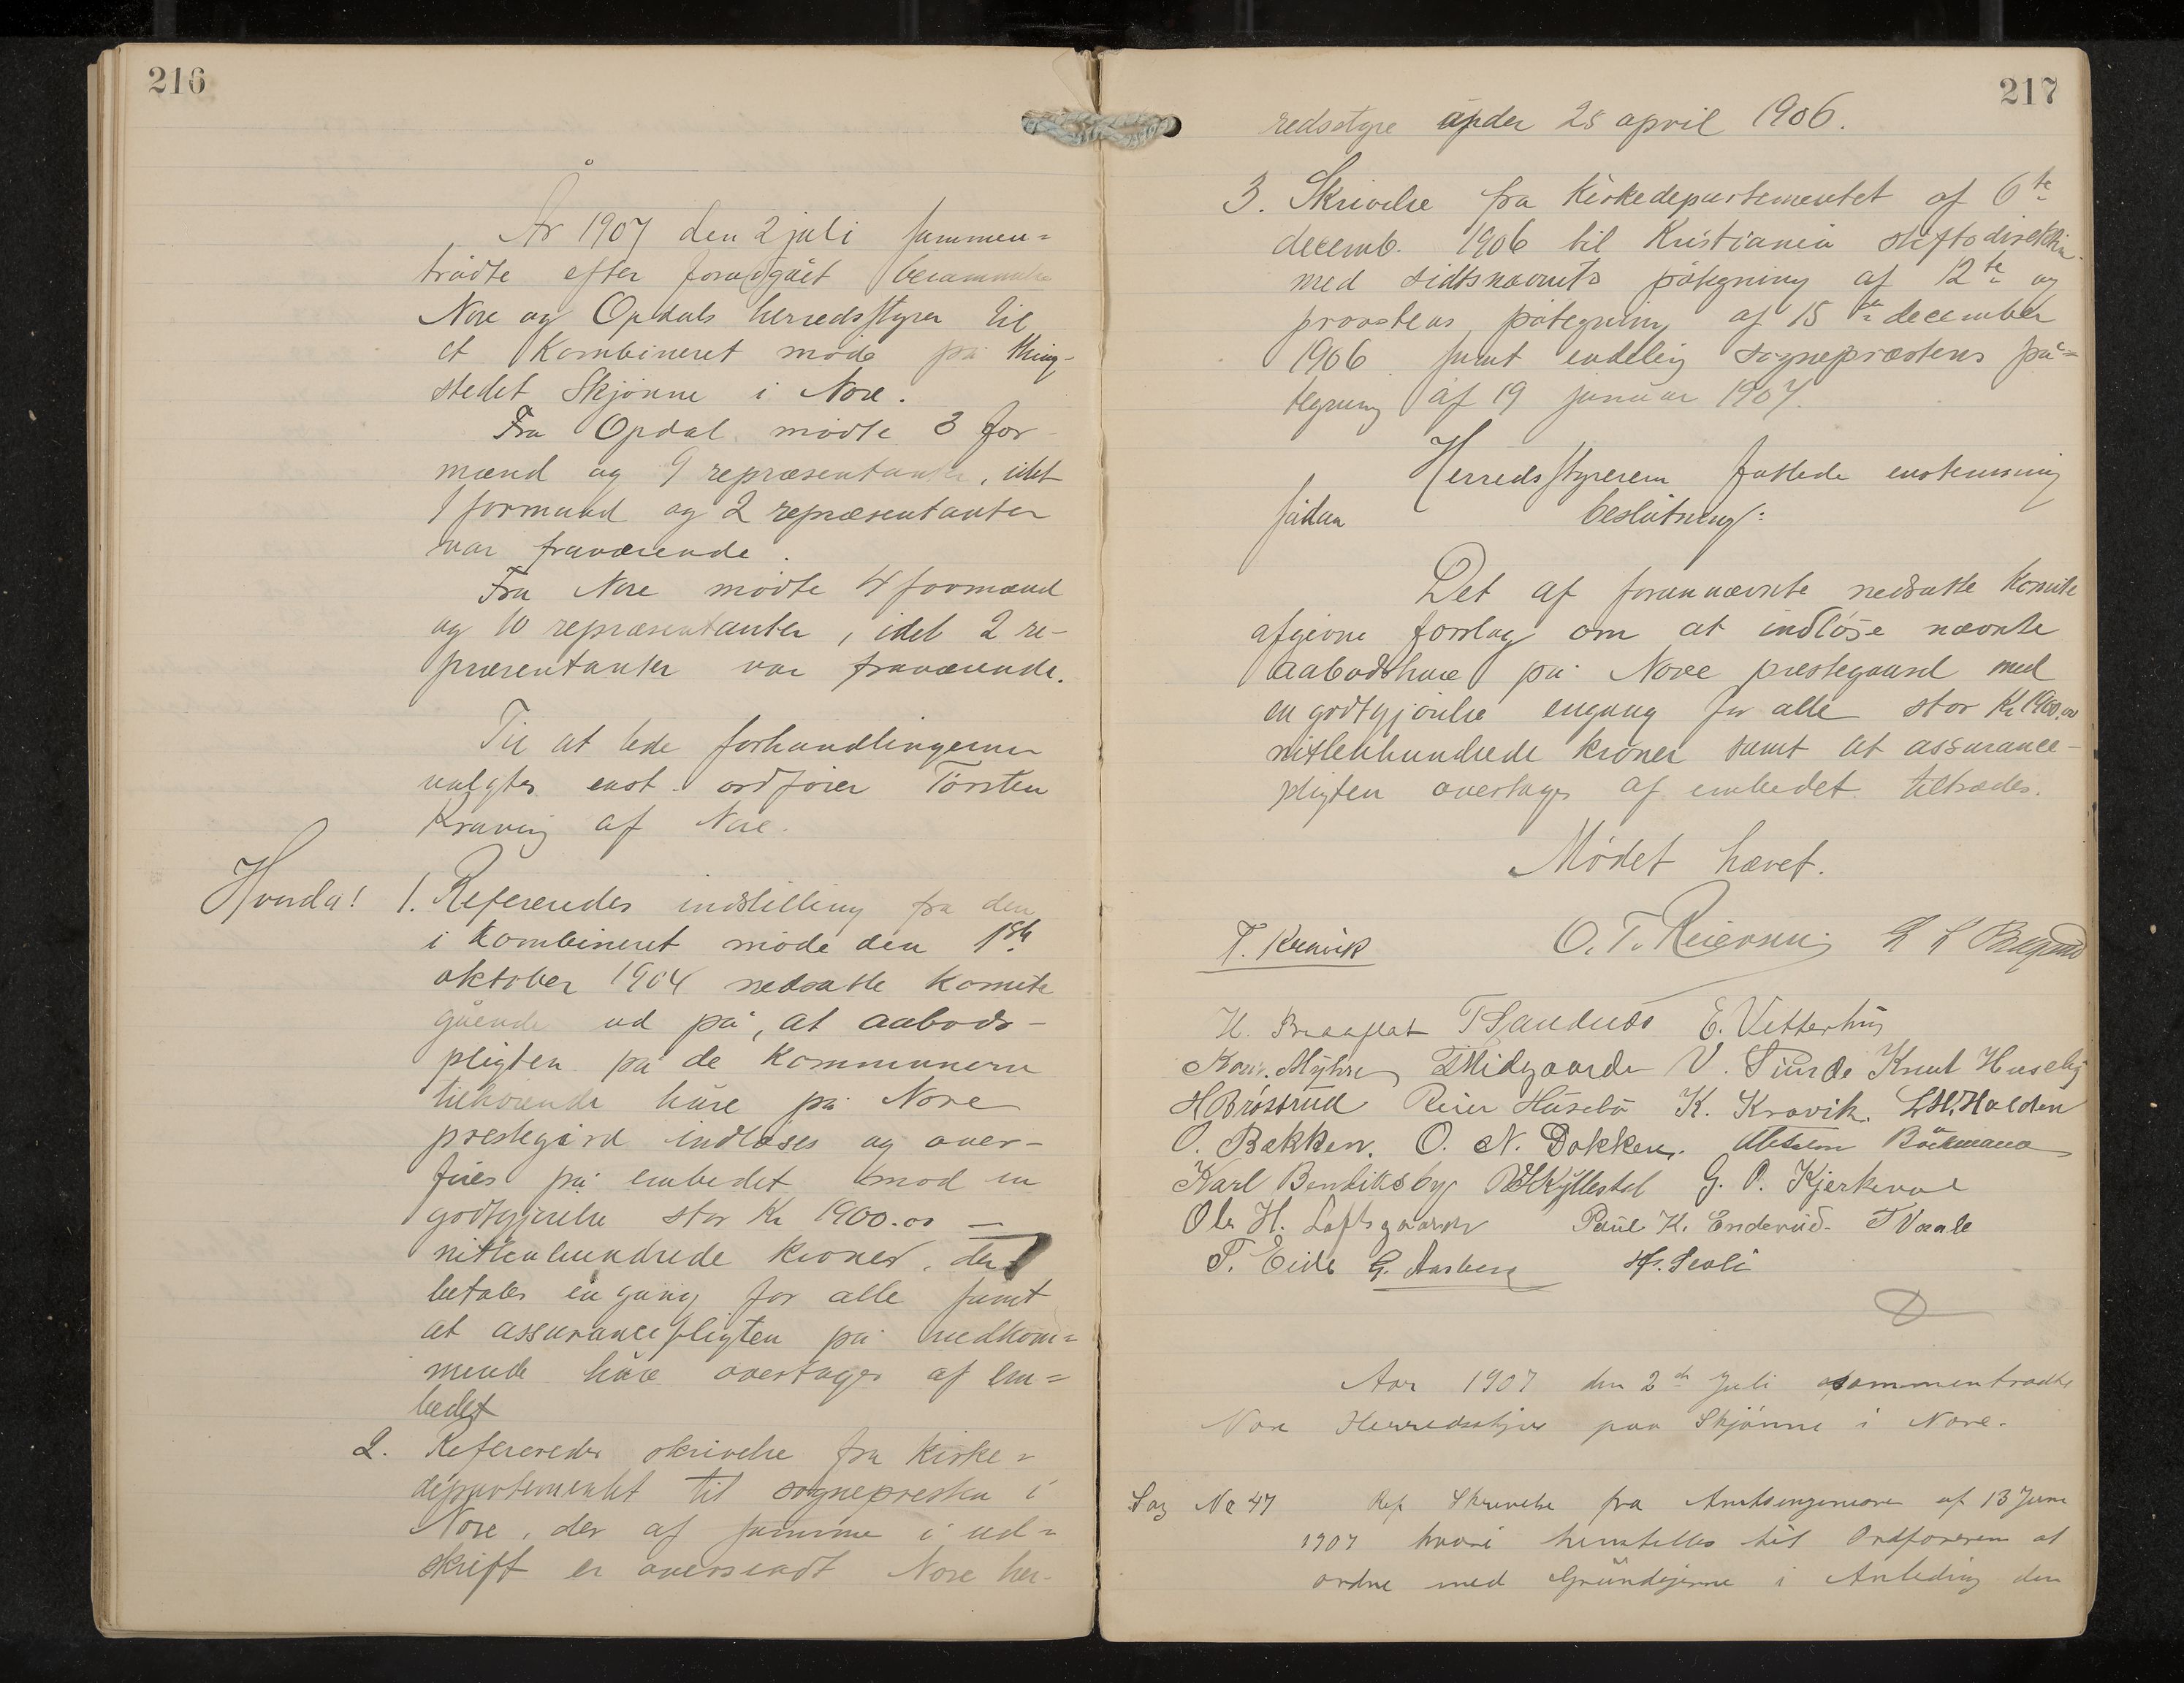 216
År 1907 den 2 juli sammen=
trådte efter foregået berammelse
Nore og Opdals herredsstyrer til
et kombineret møde på thing-
stedet Skjønne i Nore.
Fra Opdal mødte 3 for-
mænd og 9 repræsentanter, idet
1 formand og 2 repræsentanter
var fraværende.
Fra Nore mødte 4 formænd
og 10 repræsentanter, idet 2 re-
præsentanter var fraværende.
Til at lede forhandlingerne
valgtes enst. ordfører Torsten
Kravik af Nore.
Hvorda!
1. Refereredes indstilling fra den
i kombineret møde den 1ste
oktober 1904 nedsatte komite
gående ud på, at aabods-
pligten på de kommunerne
tilhørende huse på Nore
prestegård indløses og over-
føres på embedet mod en
godtgjørelse stor Kr 1900.00 —
nittenhundrede kroner, der
betales én gang for alle samt
at assurancepligten på vedkom=
mende huse overtages af em=
bedet
2. Refereredes skrivelse fra kirke=
departementet til sognepresten i
Nore, der af samme i ud=
skrift er oversendt Nore her-
217
redsstyre under 28 april 1906.
3. Skrivelse fra Kirkedepartementet af 6te
decemb. 1906 til Kristiania stiftsdirektion
med sidstnævnts påtegning af 12te og
provstens påtegning af 15de december
1906 samt endelig sogneprestens på=
tegning af 19 januar 1907.
Herredsstyrerem fattede enstemmig
sådan beslutning:
Det af forannævnte nedsatte komite
afgivne forslag om at indløse nævnte
aabodshuse på Nore prestegaard med
en godtgjørelse engang for alle stor Kr 1900.00
nittenhundrede kroner samt at assurance-
pligten overtages af embedet tiltrædes.
Mødet hævet.
T. Kravik O. T. Reiersen
H. Braaflat T Sandnes E. Vetterhus
Myhre T Midgaarden V. Sunde Knut Huseby
H Brøstrud Reier Husebø K. Kravik. L H. Halden
O. Bakken. O. N. Dokken. Bäckmann
Karl Bendiksby G. O. Kjerkevol
Ole H. Loftsgaarden Paul K. Enderud. T Vaale
T. Eide G. Aasberg
Aar 1907 den 2de Juli sammentraadte
Nore Herredsstyre paa Skjønne i Nore.
Sag No 47 Ref Skrivelse fra Amtsingeniøren af 13 Juni
1907 hvori henstilles til Ordføreren at
ordne med Grundeierne i Anledning den